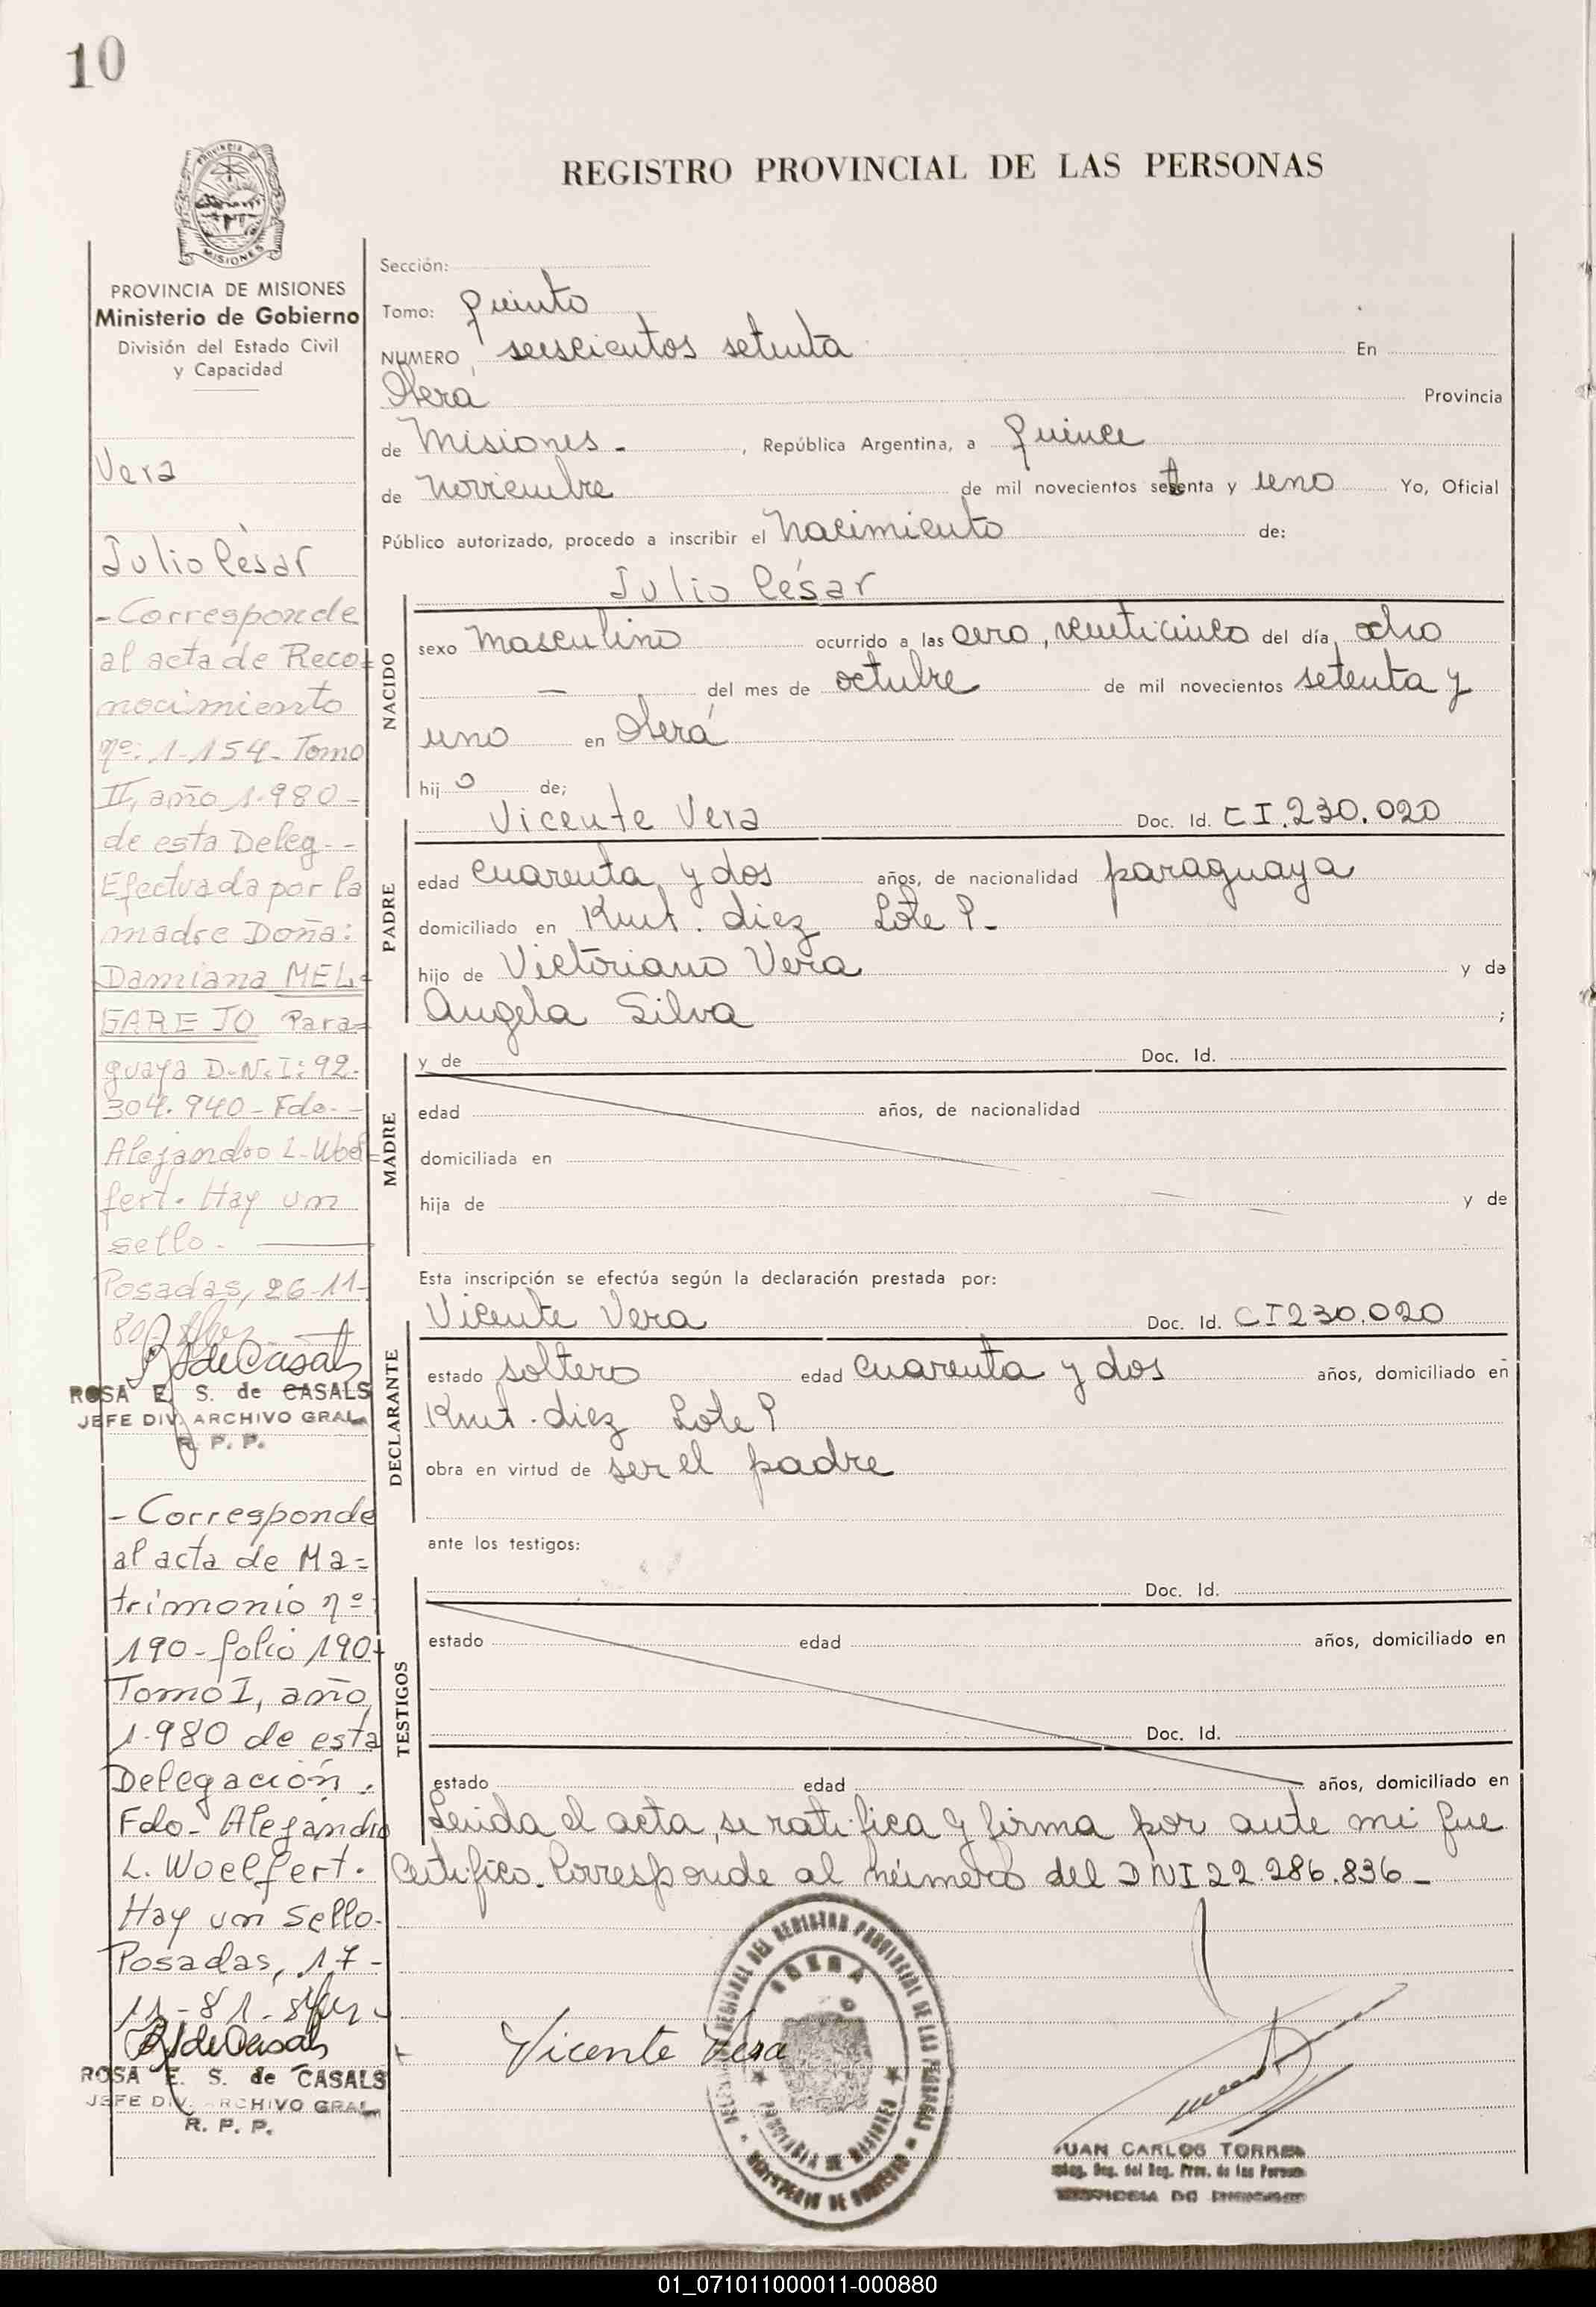 10
PROVINCIA
MISIONES
REGISTRO PROVINCIAL DE LAS PERSONAS
PROVINCIA DE MISIONES
Ministerio de Gobierno
División del Estado Civil
y Capacidad
Vera
Julio César
-Corresponde
al acta de Reco=
nocimiento
nº: 1-154- Tomo
II, año 1.980-
de esta Deleg--
Efectuada por la
madre Doña:
Damiana MEL=
GAREJO Para=
guaya D.N.I: 92.
304.940- Fdo.-
Alejandro L. Woel=
fert. Hay un
sello.
Posadas, 26-11-
80-
ROSA E. S. de CASALS
JEFE DIV. ARCHIVO GRAL.
R. P. P.
-Corresponde
al acta de Ma=
trimonio nº
190-folio 190-
Tomo I, año
1.980 de esta
Delegación.
Fdo- Alejandro
L. Woelfert.
Hay un sello.
Posadas, 17-
11-81-
ROSA E. S. de CASALS
JEFE DIV. ARCHIVO GRAL.
R. P. P.
Sección:
Tomo: quinto
NUMERO seiscientos setenta En
Oberá Provincia
de Misiones- , República Argentina, a quince
de noviembre de mil novecientos setenta y uno Yo, Oficial
Público autorizado, procedo a inscribir el nacimiento de:
Julio César
NACIDO
sexo masculino ocurrido a las cero, veinticinco del día ocho
— del mes de octubre de mil novecientos setenta y
uno en Oberá
hijo de;
Vicente Vera Doc. Id. C I. 230.020
PADRE
edad cuarenta y dos años, de nacionalidad paraguaya
domiciliado en Kmt. diez Lote 9-
hijo de Victoriano Vera y de
Angela Silva ;
MADRE
y de Doc. Id.
edad años, de nacionalidad
domiciliada en
hija de y de
Esta inscripción se efectúa según la declaración prestada por:
Vicente Vera Doc. Id. C I 230.020
DECLARANTE
estado soltero edad cuarenta y dos años, domiciliado en
Kmt. diez Lote 9
obra en virtud de ser el padre
ante los testigos:
TESTIGOS
Doc. Id.
estado edad años, domiciliado en
Doc. Id.
estado edad años, domiciliado en
Leida el acta, se ratifica y firma por ante mi que
certifico. Corresponde al número del DNI 22.286.836-
Vicente Vera
OBERA
PROVINCIA DE MISIONES
MINISTERIO DE GOBIERNO
JUAN CARLOS TORRES
01_071011000011-000880